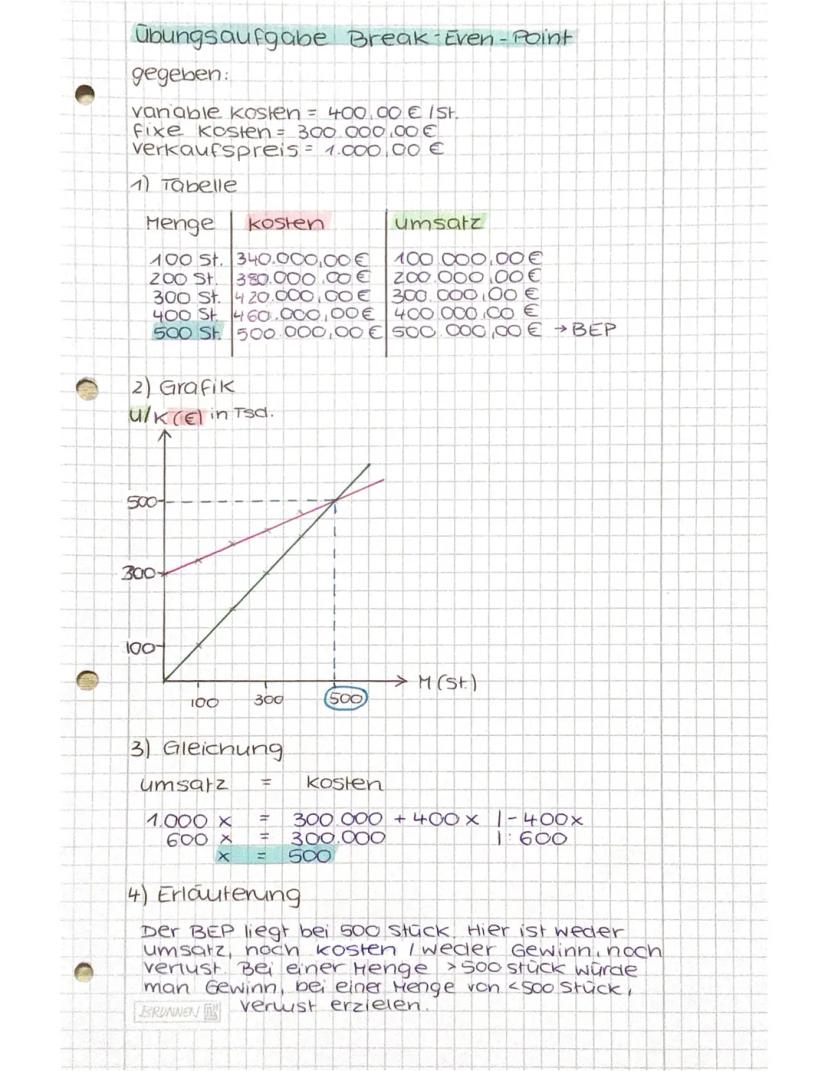 Übungsaufgabe Break-Even-Point
gegeben:
variable Kosten = 400,00 € / St.
fixe Kosten = 300.000,00 €
Verkaufspreis = 1.000,00 €
1) Tabelle
Menge Kosten Umsatz
100 St. 340.000,00 € 100 000,00 €
200 St. 380.000,00 € 200.000,00 €
300 St. 420.000,00 € 300.000,00 €
400 St. 460.000,00 € 400.000,00 €
500 St. 500.000,00 € 500.000,00 € → BEP
2) Grafik
U/K (€) in Tsd.
500
300
100
M (St.)
100 300 500
3) Gleichung
Umsatz = Kosten
1.000 x = 300.000 + 400 x | - 400x
600 x = 300.000 | : 600
x = 500
4) Erläuterung
Der BEP liegt bei 500 Stück. Hier ist weder
Umsatz, noch Kosten / weder Gewinn, noch
Verlust. Bei einer Menge > 500 Stück würde
man Gewinn, bei einer Menge von < 500 Stück,
Verlust erzielen.
BRUNNEN